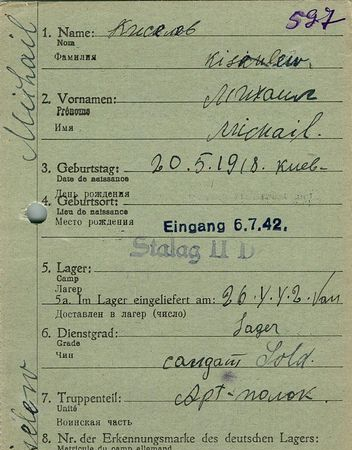 597
1. Name: Киселев
Nom
Фамилия Kisselew.
2. Vornamen: Михаил
Prénoms
Имя Michail.
3. Geburtstag: 20.5.1918. Киев
Date de naissance
День рождения
4. Geburtsort:
Lieu de naissance
Место рождения
Eingang 6.7.42.
Stalag II D
5. Lager:
Camp
Лагерь
5a. Im Lager eingeliefert am: 26
Доставлен в лагерь (число)
6. Dienstgrad: Lager
Grade
Чин солдат Sold.
7. Truppenteil: Арт-полок.
Unité
Воинская часть
8. Nr. der Erkennungsmarke des deutschen Lagers:
Matricule du camp allemand
Michail